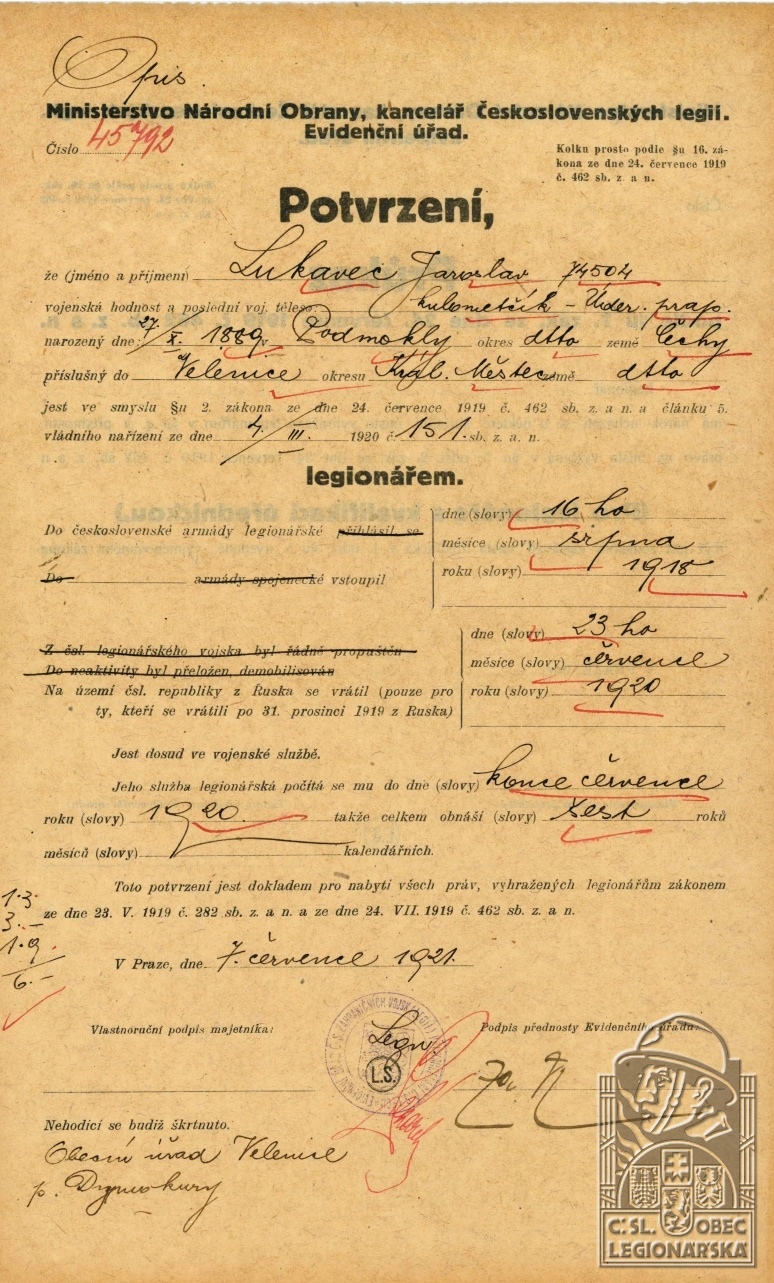 Opis.
Ministerstvo Národní Obrany, kancelář Československých legií.
Evidenční úřad.
Číslo 45792
Kolku prosto podle §u 16. zá-
kona ze dne 24. července 1919
č. 462 sb. z. a n.
Potvrzení,
že (jméno a příjmení) Lukavec Jaroslav 74504
vojenská hodnost a poslední voj. těleso: kulometčík - Úder. prap.
narozený dne: 27/X. 1889 v Podmokly okres dtto země Čechy
příslušný do Velenice okresu Král. Městec země dtto
jest ve smyslu §u 2. zákona ze dne 24. července 1919 č. 462 sb. z. a n. a článku 5.
vládního nařízení ze dne 4./III. 1920 č. 151. sb. z. a n.
legionářem.
Do československé armády legionářské přihlásil se
Do armády spojenecké vstoupil
dne (slovy) 16 ho
měsíce (slovy) srpna
roku (slovy) 1918
Z čsl. legionářského vojska byl řádně propuštěn
Do neaktivity byl přeložen, demobilisován
Na území čsl. republiky z Ruska se vrátil (pouze pro
ty, kteří se vrátili po 31. prosinci 1919 z Ruska)
dne (slovy) 23 ho
měsíce (slovy) července
roku (slovy) 1920
Jest dosud ve vojenské službě.
Jeho služba legionářská počítá se mu do dne (slovy) konce července
roku (slovy) 1920. takže celkem obnáší (slovy) šest roků
měsíců (slovy) kalendářních.
Toto potvrzení jest dokladem pro nabytí všech práv, vyhražených legionářům zákonem
ze dne 23. V. 1919 č. 282 sb. z. a n. a ze dne 24. VII. 1919 č. 462 sb. z. a n.
1.3.
3.-
1.9
6.-
V Praze, dne 7. července 1921.
Vlastnoruční podpis majetníka:
Legn.
L.S.
Podpis přednosty Evidenčního úřadu:
Nehodící se budiž škrtnuto.
Obecní úřad Velenice
p. Dymokury
Č.SL. OBEC
LEGIONÁŘSKÁ